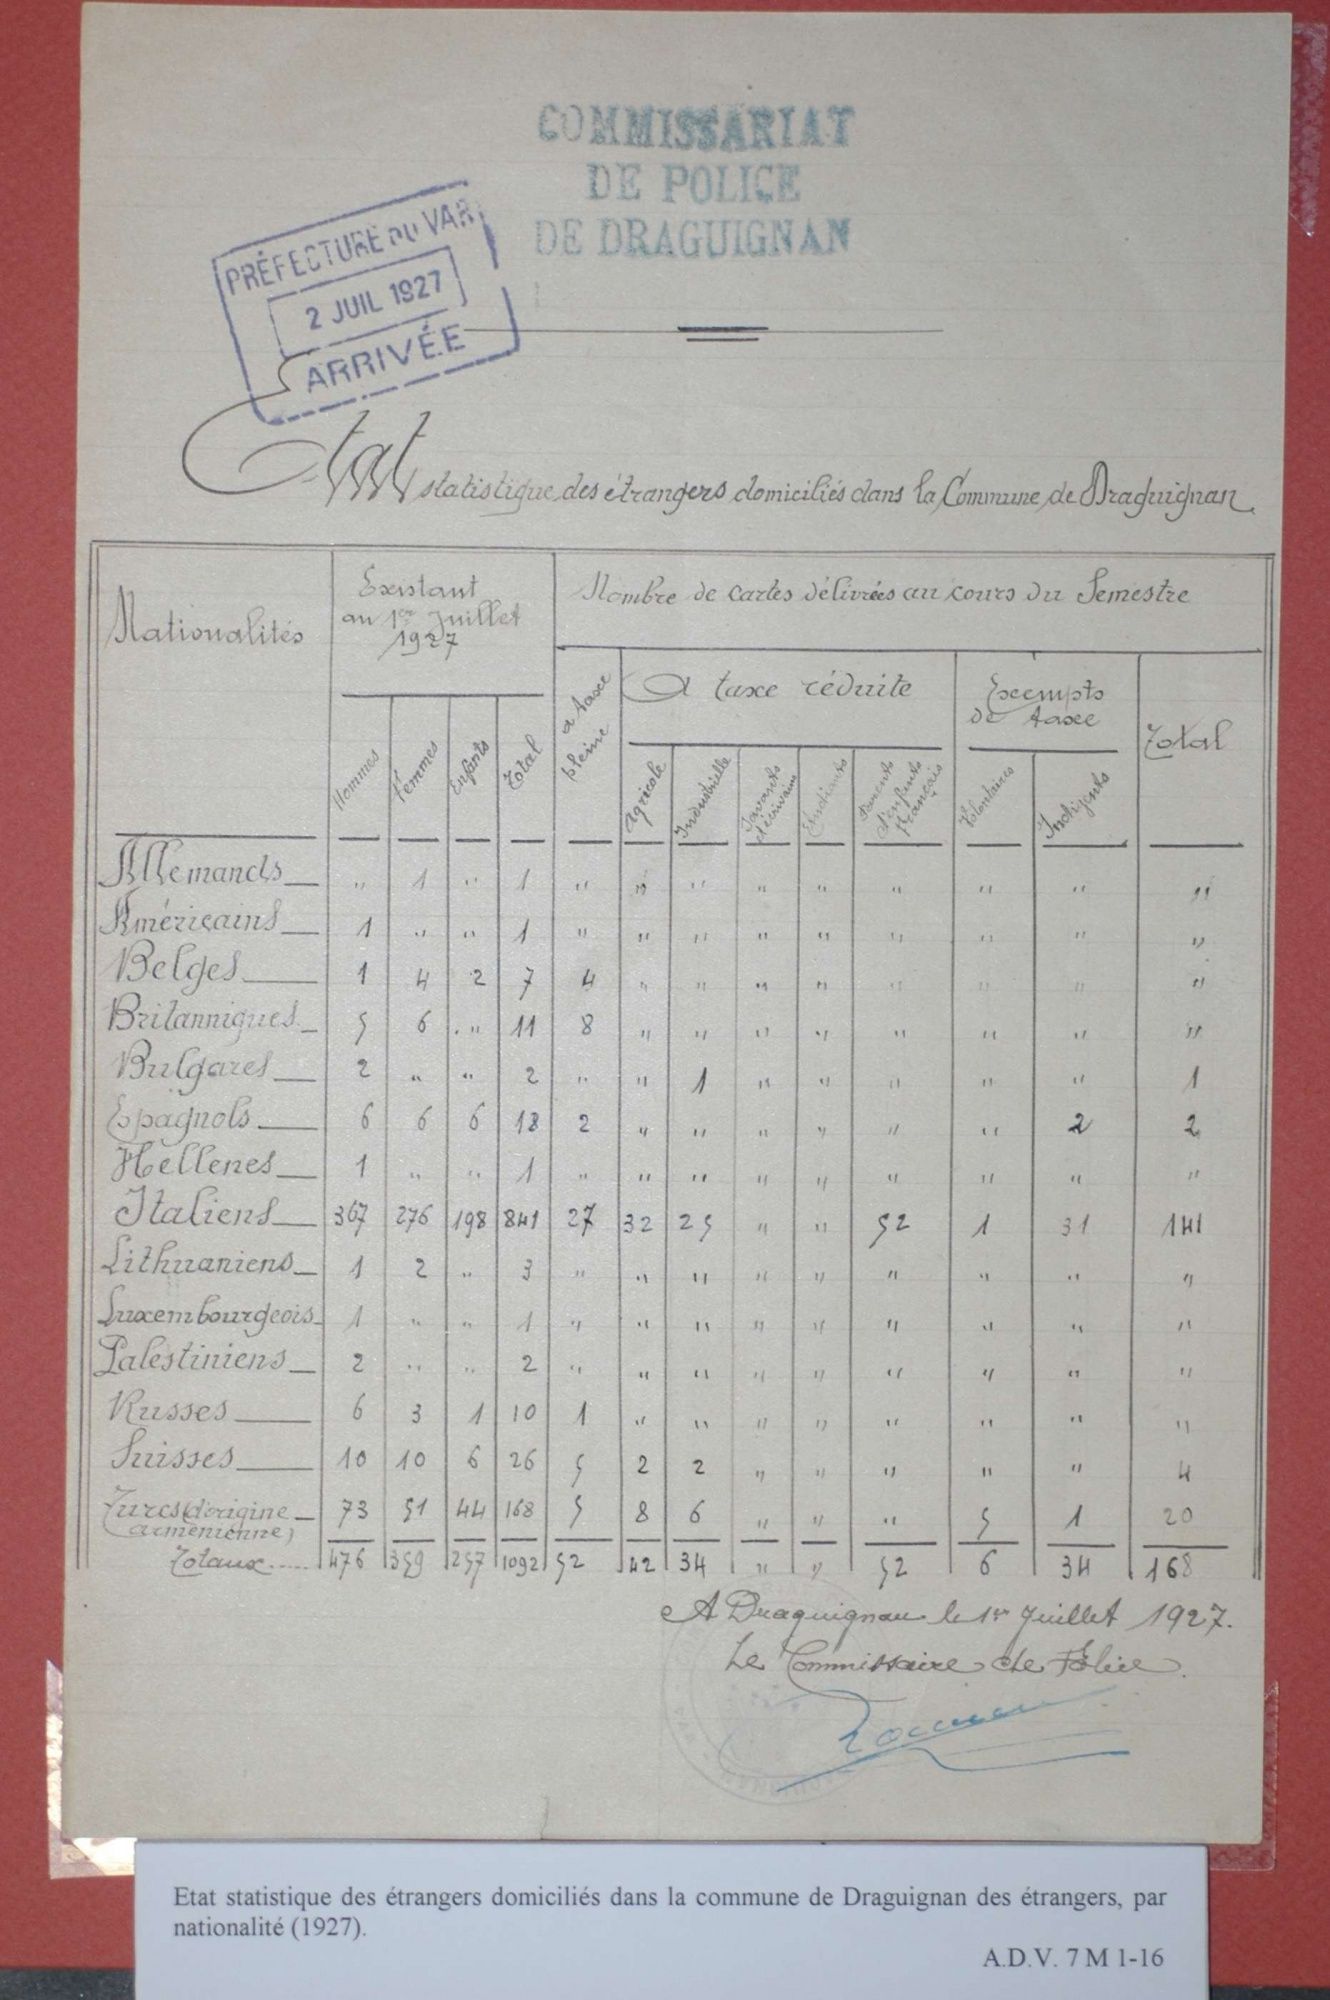 COMMISSARIAT
DE POLICE
DE DRAGUIGNAN
PRÉFECTURE DU VAR
2 JUIL 1927
ARRIVÉE
Etat statistique des étrangers domiciliés dans la Commune de Draguignan
Nationalités
Existant au 1er Juillet 1927
Nombre de cartes délivrées au cours du Semestre
a taxe pleine
A taxe réduite
Exempts de taxe
Total
Hommes Femmes Enfants Total Agricole Industrielle Savants et écrivains Etudiants Parents d'enfants français Volontaires Indigents
Allemands " 1 " 1 " " " " " " " " "
Américains 1 " " 1 " " " " " " " " "
Belges 1 4 2 7 4 " " " " " " " "
Britanniques 5 6 " 11 8 " " " " " " " "
Bulgares 2 " " 2 " " 1 " " " " " 1
Espagnols 6 6 6 18 2 " " " " " " 2 2
Hellenes 1 " " 1 " " " " " " " " "
Italiens 367 276 198 841 27 32 25 " " 52 1 31 141
Lithuaniens 1 2 " 3 " " " " " " " " "
Luxembourgeois 1 " " 1 " " " " " " " " "
Palestiniens 2 " " 2 " " " " " " " " "
Russes 6 3 1 10 1 " " " " " " " "
Suisses 10 10 6 26 5 2 2 " " " " " 4
Turcs (d'origine arménienne) 73 51 44 168 5 8 6 " " " 5 1 20
Totaux..... 476 359 257 1092 52 42 34 " " 52 6 34 168
A Draguignan le 1er Juillet 1927.
Le Commissaire de Police
Etat statistique des étrangers domiciliés dans la commune de Draguignan des étrangers, par
nationalité (1927).
A.D.V. 7 M 1-16